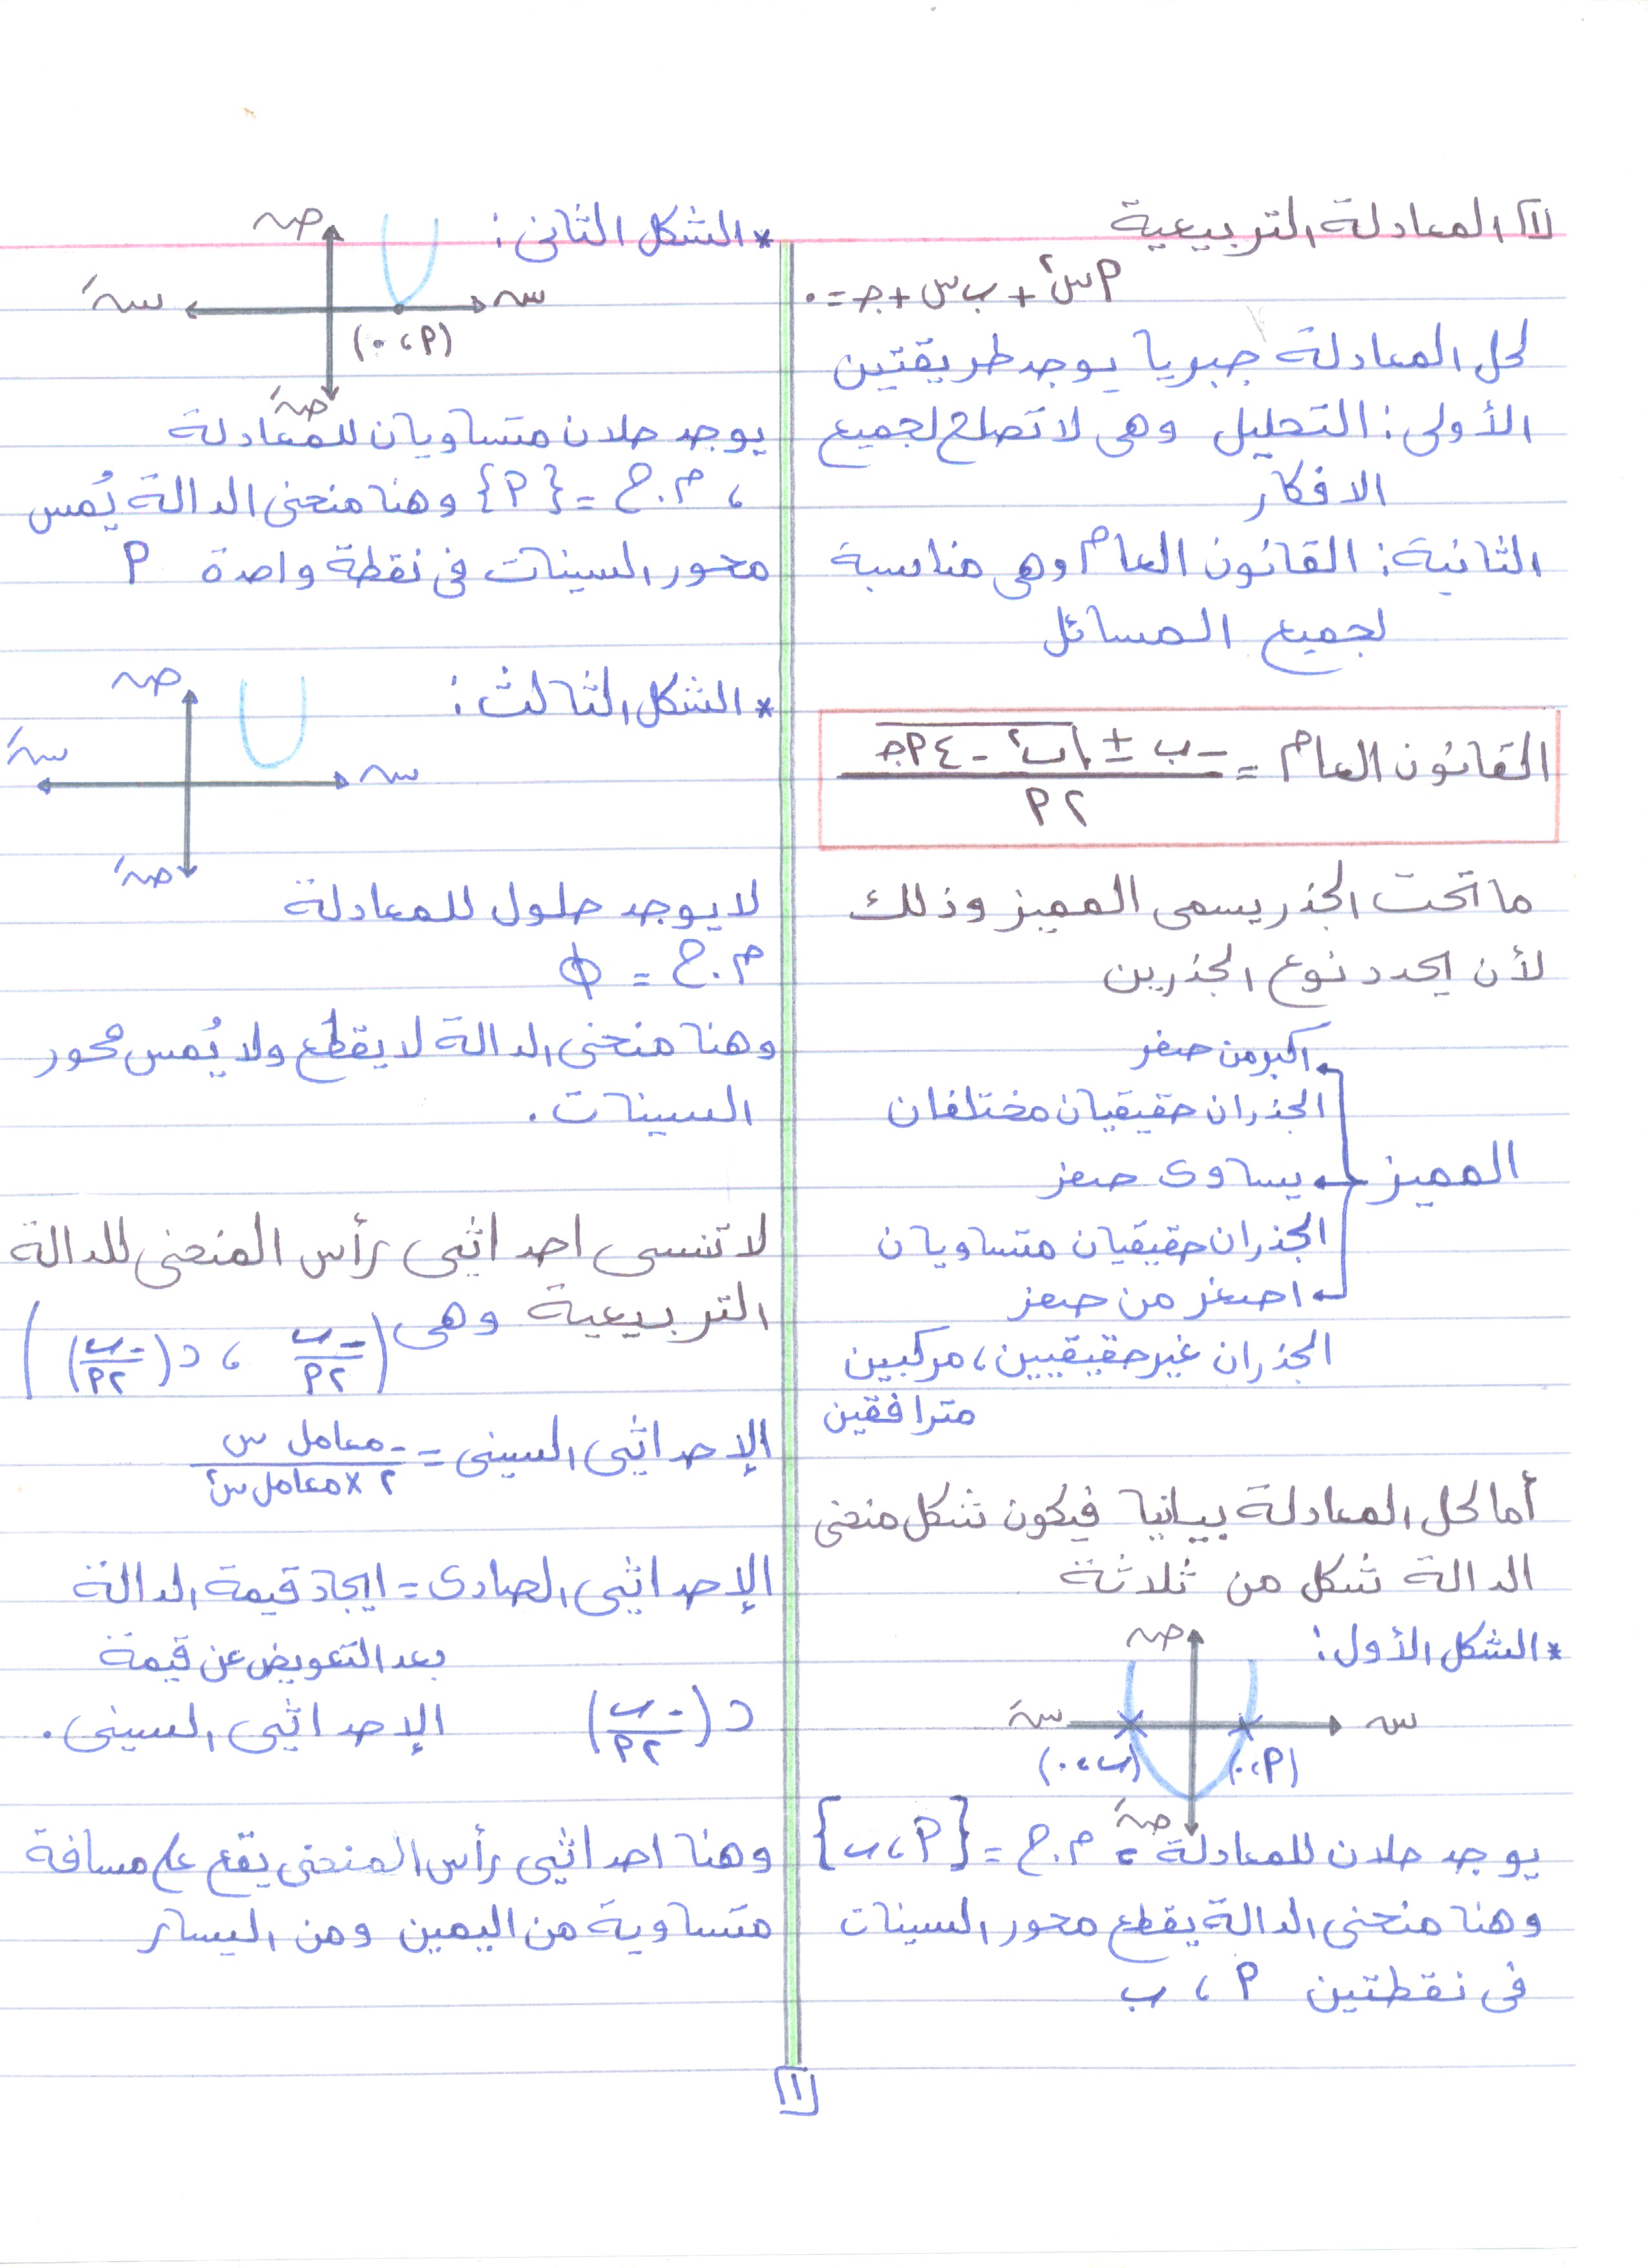 المعادلة التربيعية
أس٢ + ب س + جـ = ٠
لحل المعادلة جبريا يوجد طريقتين
الأولى: التحليل وهى لا تصلح لجميع
الافكار
الثانية: القانون العام وهى مناسبة
لجميع المسائل
القانون العام = -ب ± √ب٢ - ٤أجـ
٢أ
ما تحت الجذر يسمى المميز وذلك
لأن يحدد نوع الجذرين
اكبر من صفر
الجذران حقيقيان مختلفان
المميز يساوى صفر
الجذران حقيقيان متساويان
اصغر من صفر
الجذران غير حقيقيين، مركبين
مترافقين
أما لحل المعادلة بيانيا فيكون شكل منحنى
الدالة شكل من ثلاثة
* الشكل الأول:
صـ
س سَ
(أ،٠) (ب،٠)
صَـ
يوجد حلان للمعادلة، م.ح = {أ، ب}
وهنا منحنى الدالة يقطع محور السينات
فى نقطتين أ، ب
* الشكل الثانى:
صـ
س سَ
(أ،٠)
صَـ
يوجد حلان متساويان للمعادلة
، م.ح = {أ} وهنا منحنى الدالة يُمس
محور السينات فى نقطة واحدة أ
* الشكل الثالث:
صـ
س سَ
صَـ
لا يوجد حلول للمعادلة
م.ح = φ
وهنا منحنى الدالة لا يقطع ولا يُمس محور
السينات.
لا تنسى احداثيى رأس المنحنى للدالة
التربيعية وهى (-ب/٢أ ، د(-ب/٢أ))
الإحداثيى السينى = -معامل س
٢ × معامل س٢
الإحداثيى الصادى = ايجاد قيمة الدالة
بعد التعويض عن قيمة
د(-ب/٢أ) الإحداثيى السينى.
وهنا احداثيى رأس المنحنى يقع على مسافة
متساوية من اليمين ومن اليسار
١١